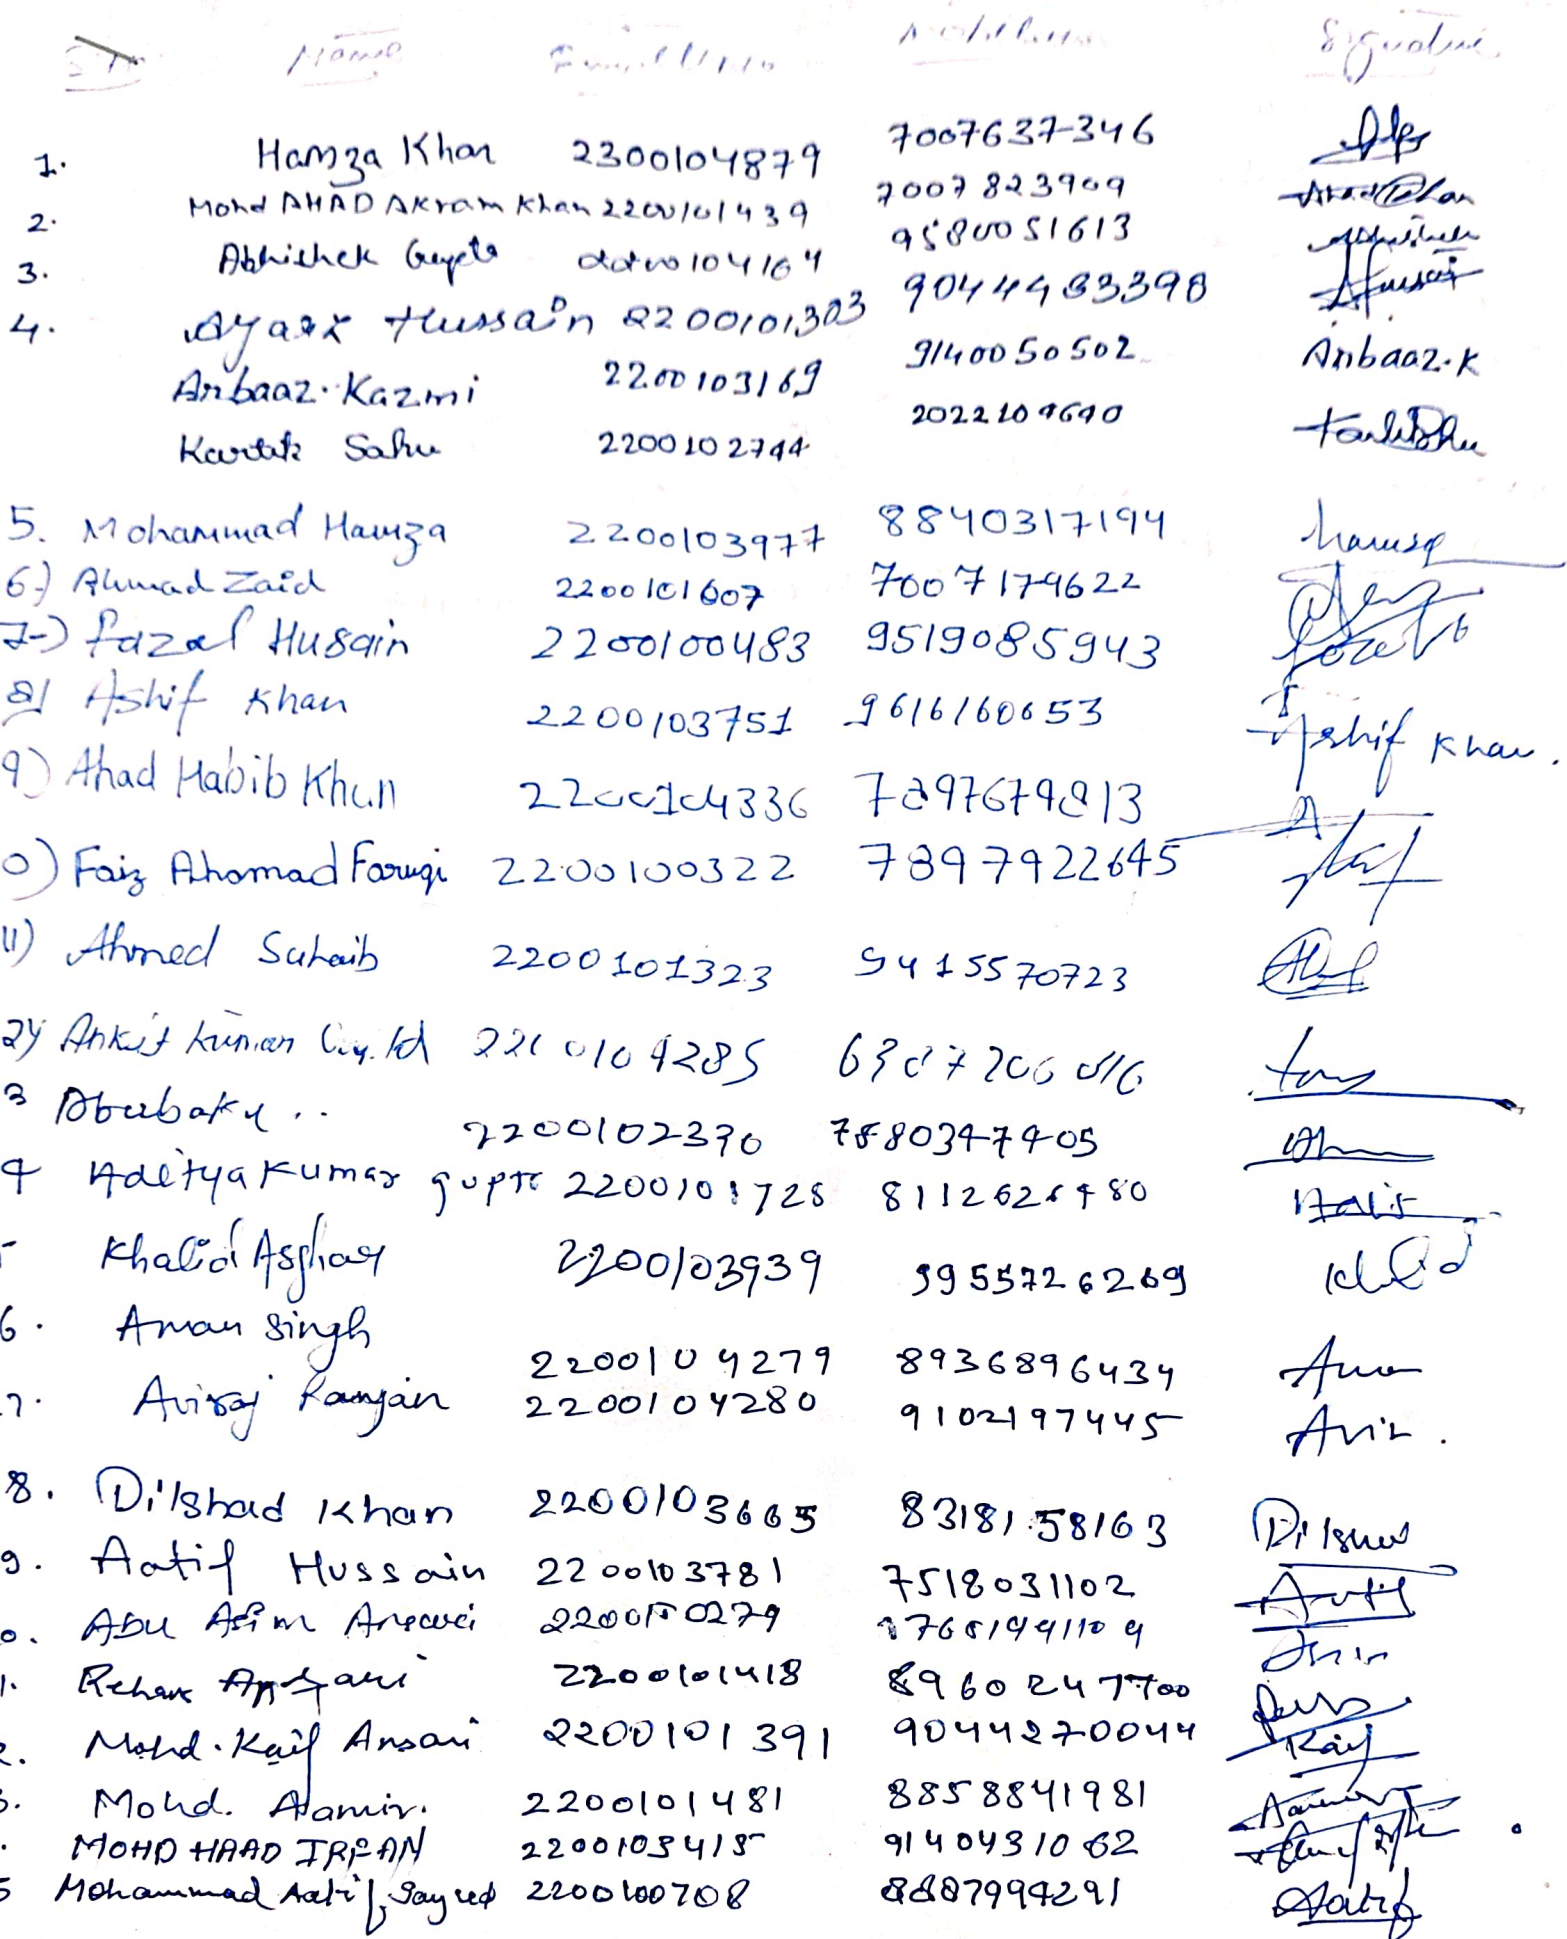 S.No Name Enroll No Mobile No Signature
1. Hamza Khan 2300104879 7007637346
2. Mohd AHAD Akram Khan 2200101439 7007823909
3. Abhishek Gupta 2200104164 9580051613
4. Ayaax Hussain 2200101303 9044433398
Anbaaz. Kazmi 2200103169 9140050502 Anbaaz.K
Kartik Sahu 2200102744
5. Mohammad Hamza 2200103977 8840317194 hamza
6) Ahmad Zaid 2200101607 7007174622
7-) fazal Husain 2200100483 9519085943
8) Ashif Khan 2200103751 9616160653 Ashif Khan.
9) Ahad Habib Khan 2200104336
0) Faiz Ahomad Faruqi 2200100322 7897922645
11) Ahmed Suhaib 2200101323 9415570723
2) Ankit Kumar
3 Abubakr .. 2200102370
4 Aditya Kumar gupta 2200101728
Khalid Asghar 2200103939 9955726269 Khalid
6. Aman Singh 2200104279 8936896434 Aman
7. Aviraj Ranjan 2200104280 9102197445 Avir.
8. Dilshad Khan 2200103665 8318158163 Dilshad
9. Aatif Hussain 2200103781 7518031102 Aatif
0. Abu Asim Ansari
1. Rehan Ansari 2200101418 8960247700
2. Mohd. Kaif Ansari 2200101391 9044270044 Kaif
3. Mohd. Aamir. 2200101481 8858841981 Aamir
. MOHD HAAD IRFAN 2200103415 9140431062
5 Mohammad Aatif Sayyed 2200100708 8687994291 Aatif